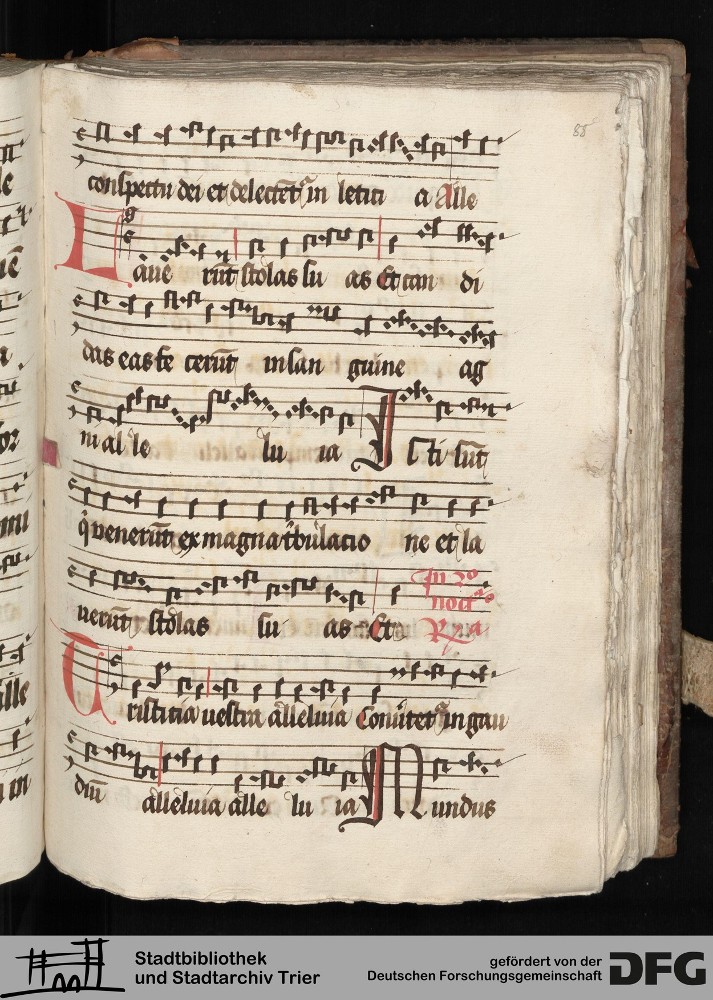 85
conspectu dei et delectēt in letici a Alle
Laue rūt stolas su as Et can di
das eas fe cerūt in san guine ag
ni al le lu ia Isti sūt
q̄ venerūt ex magna tbulacio ne et la
uerūt stolas su as Et
In 2o
noct
Tristicia uestra alleluia Conuitet in gau
diū alleluia alle lu ia Mundus
Stadtbibliothek
und Stadtarchiv Trier
gefördert von der
Deutschen Forschungsgemeinschaft
DFG